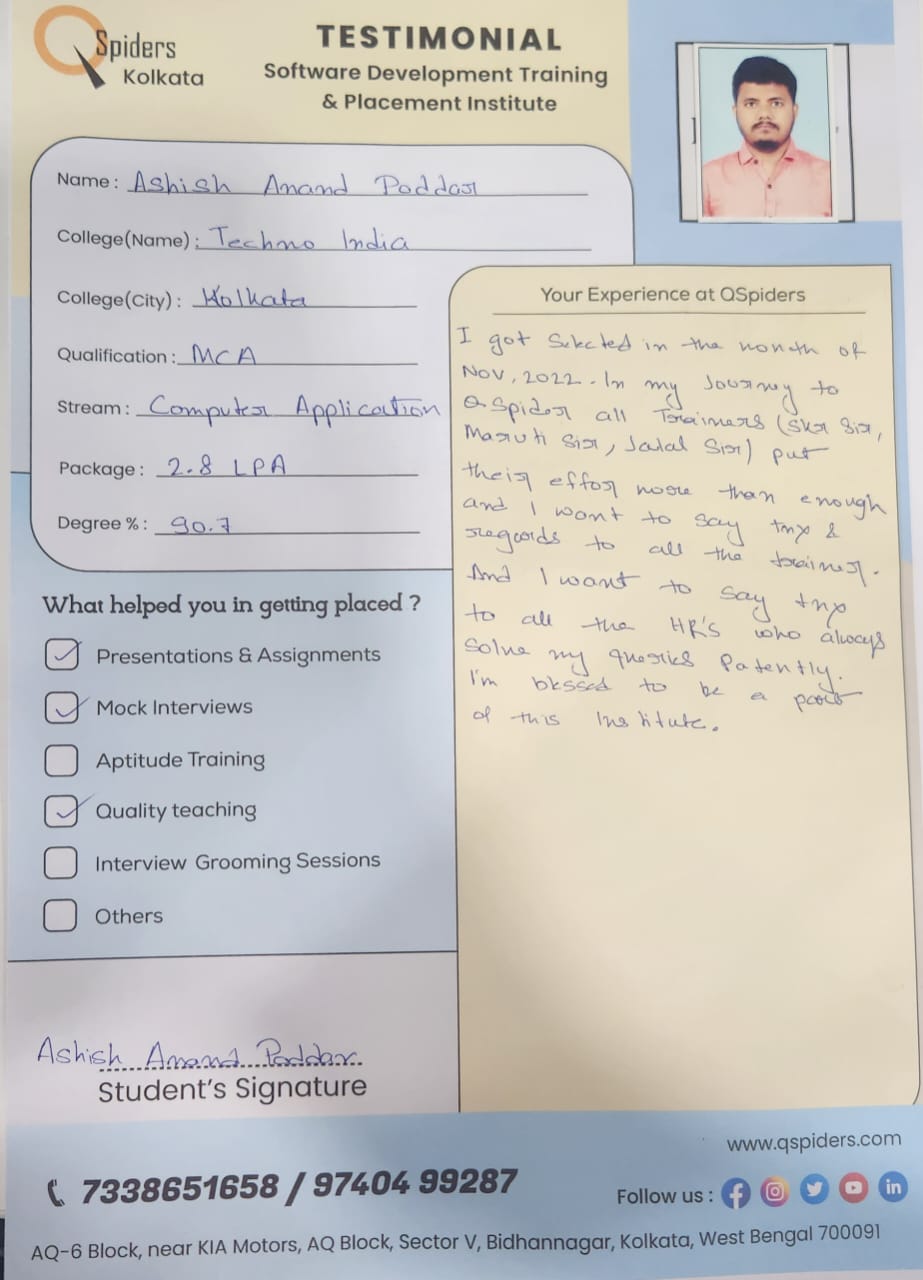 QSpiders
Kolkata
TESTIMONIAL
Software Development Training
& Placement Institute
Name : Ashish Anand Poddar
College(Name) : Techno India
College(City) : Kolkata
Qualification : MCA
Stream : Computer Application
Package : 2.8 LPA
Degree % : 90.7
What helped you in getting placed ?
Presentations & Assignments
Mock Interviews
Aptitude Training
Quality teaching
Interview Grooming Sessions
Others
Your Experience at QSpiders
I got selected in the month of
Nov, 2022. In my Journey to
Q spider all Trainers (Skr Sir,
Maruti Sir, Jalal Sir) put
their effor more than enough
and I want to say tnx &
regards to all the trainer.
And I want to say tnx
to all the HR's who always
Solve my queries Patently.
I'm blessed to be a part
of this Institute.
Ashish Anand Poddar
Student's Signature
7338651658 / 97404 99287
www.qspiders.com
Follow us :
AQ-6 Block, near KIA Motors, AQ Block, Sector V, Bidhannagar, Kolkata, West Bengal 700091